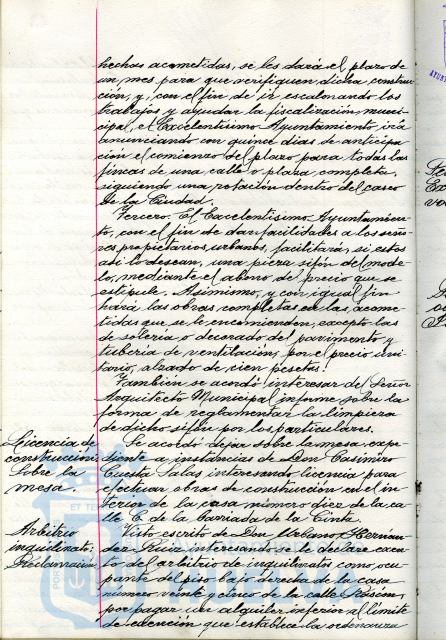 hechas acometidas, se les dará el plazo de
un mes para que verifiquen dicha construc-
ción, y, con el fin de ir escalonando los
trabajos y ayudar la fiscalización muni-
cipal, el Excelentísimo Ayuntamiento, irá
anunciando con quince días de anticipa-
ción el comienzo del plazo para todas las
fincas de una calle o plaza completa,
siguiendo una rotación dentro del casco
de la Ciudad.
Tercero. El Excelentísimo Ayuntamien-
to, con el fin de dar facilidades a los seño-
res propietarios urbanos, facilitará, si estos
así lo desean, una pieza sifón del mode-
lo, mediante el abono de precio que se
estipule. Asimismo, y con igual fin
hará las obras completas en las acome-
tidas que se le encomienden, excepto las
de solería o decorado del pavimento y
tubería de ventilación, por el precio uni-
tario, alzado de cien pesetas.
También se acordó interesar del Señor
Arquitecto Municipal informe sobre la
forma de reglamentar la limpieza
de dicho sifón por los particulares.
Licencia de
construcción:
Sobre la
mesa.
Se acordó dejar sobre la mesa, expe-
diente a instancias de Don Casimiro
Cuesta Salas interesando licencia para
efectuar obras de construcción en el in-
terior de la casa número diez de la ca-
lle E de la Barriada de la Cinta.
Arbitrio
inquilinato:
Reclamación
Visto escrito de Don Urbano Hernan-
dez Ruiz interesando se le declare exen-
to del arbitrio de inquilinatos como ocu-
pante del piso bajo derecha de la casa
número veinte y cinco de la calle Rascón,
por pagar un alquiler inferior al límite
de exención que establece la ordenanza